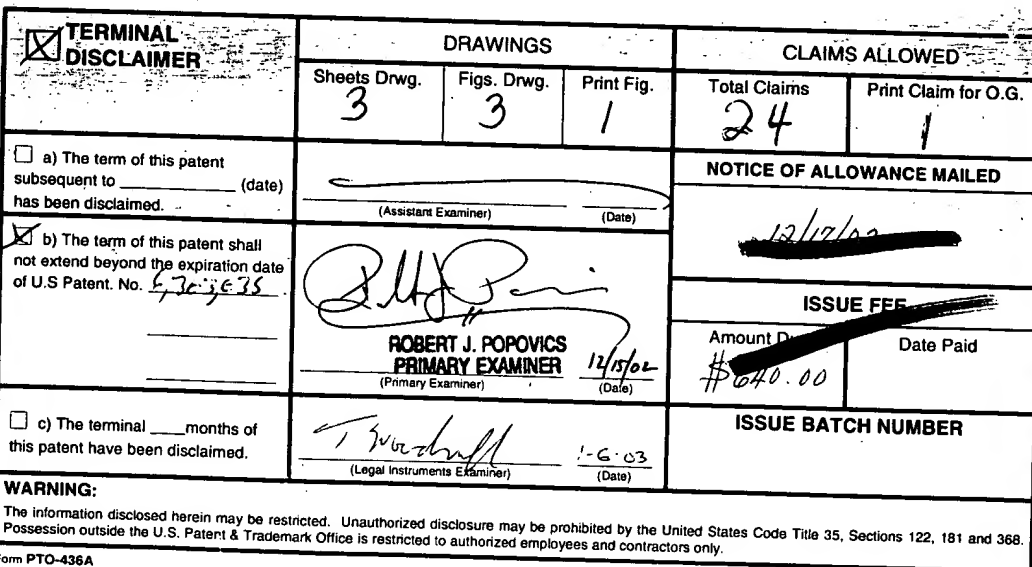 TERMINAL
DISCLAIMER
DRAWINGS
CLAIMS ALLOWED
Sheets Drwg.
Figs. Drwg.
Print Fig.
Total Claims
Print Claim for O.G.
3
3
1
24
1
a) The term of this patent
subsequent to (date)
has been disclaimed.
(Assistant Examiner)
(Date)
NOTICE OF ALLOWANCE MAILED
12/17/02
b) The term of this patent shall
not extend beyond the expiration date
of U.S Patent. No.
ROBERT J. POPOVICS
PRIMARY EXAMINER
12/15/02
(Primary Examiner)
(Date)
ISSUE FEE
Amount
Date Paid
$640.00
c) The terminal ____months of
this patent have been disclaimed.
1-6-03
(Legal Instruments Examiner)
(Date)
ISSUE BATCH NUMBER
WARNING:
The information disclosed herein may be restricted. Unauthorized disclosure may be prohibited by the United States Code Title 35, Sections 122, 181 and 368.
Possession outside the U.S. Patent & Trademark Office is restricted to authorized employees and contractors only.
Form PTO-436A